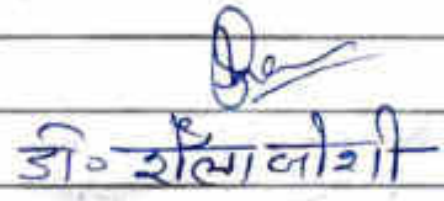 डॉ॰ शैला जोशी